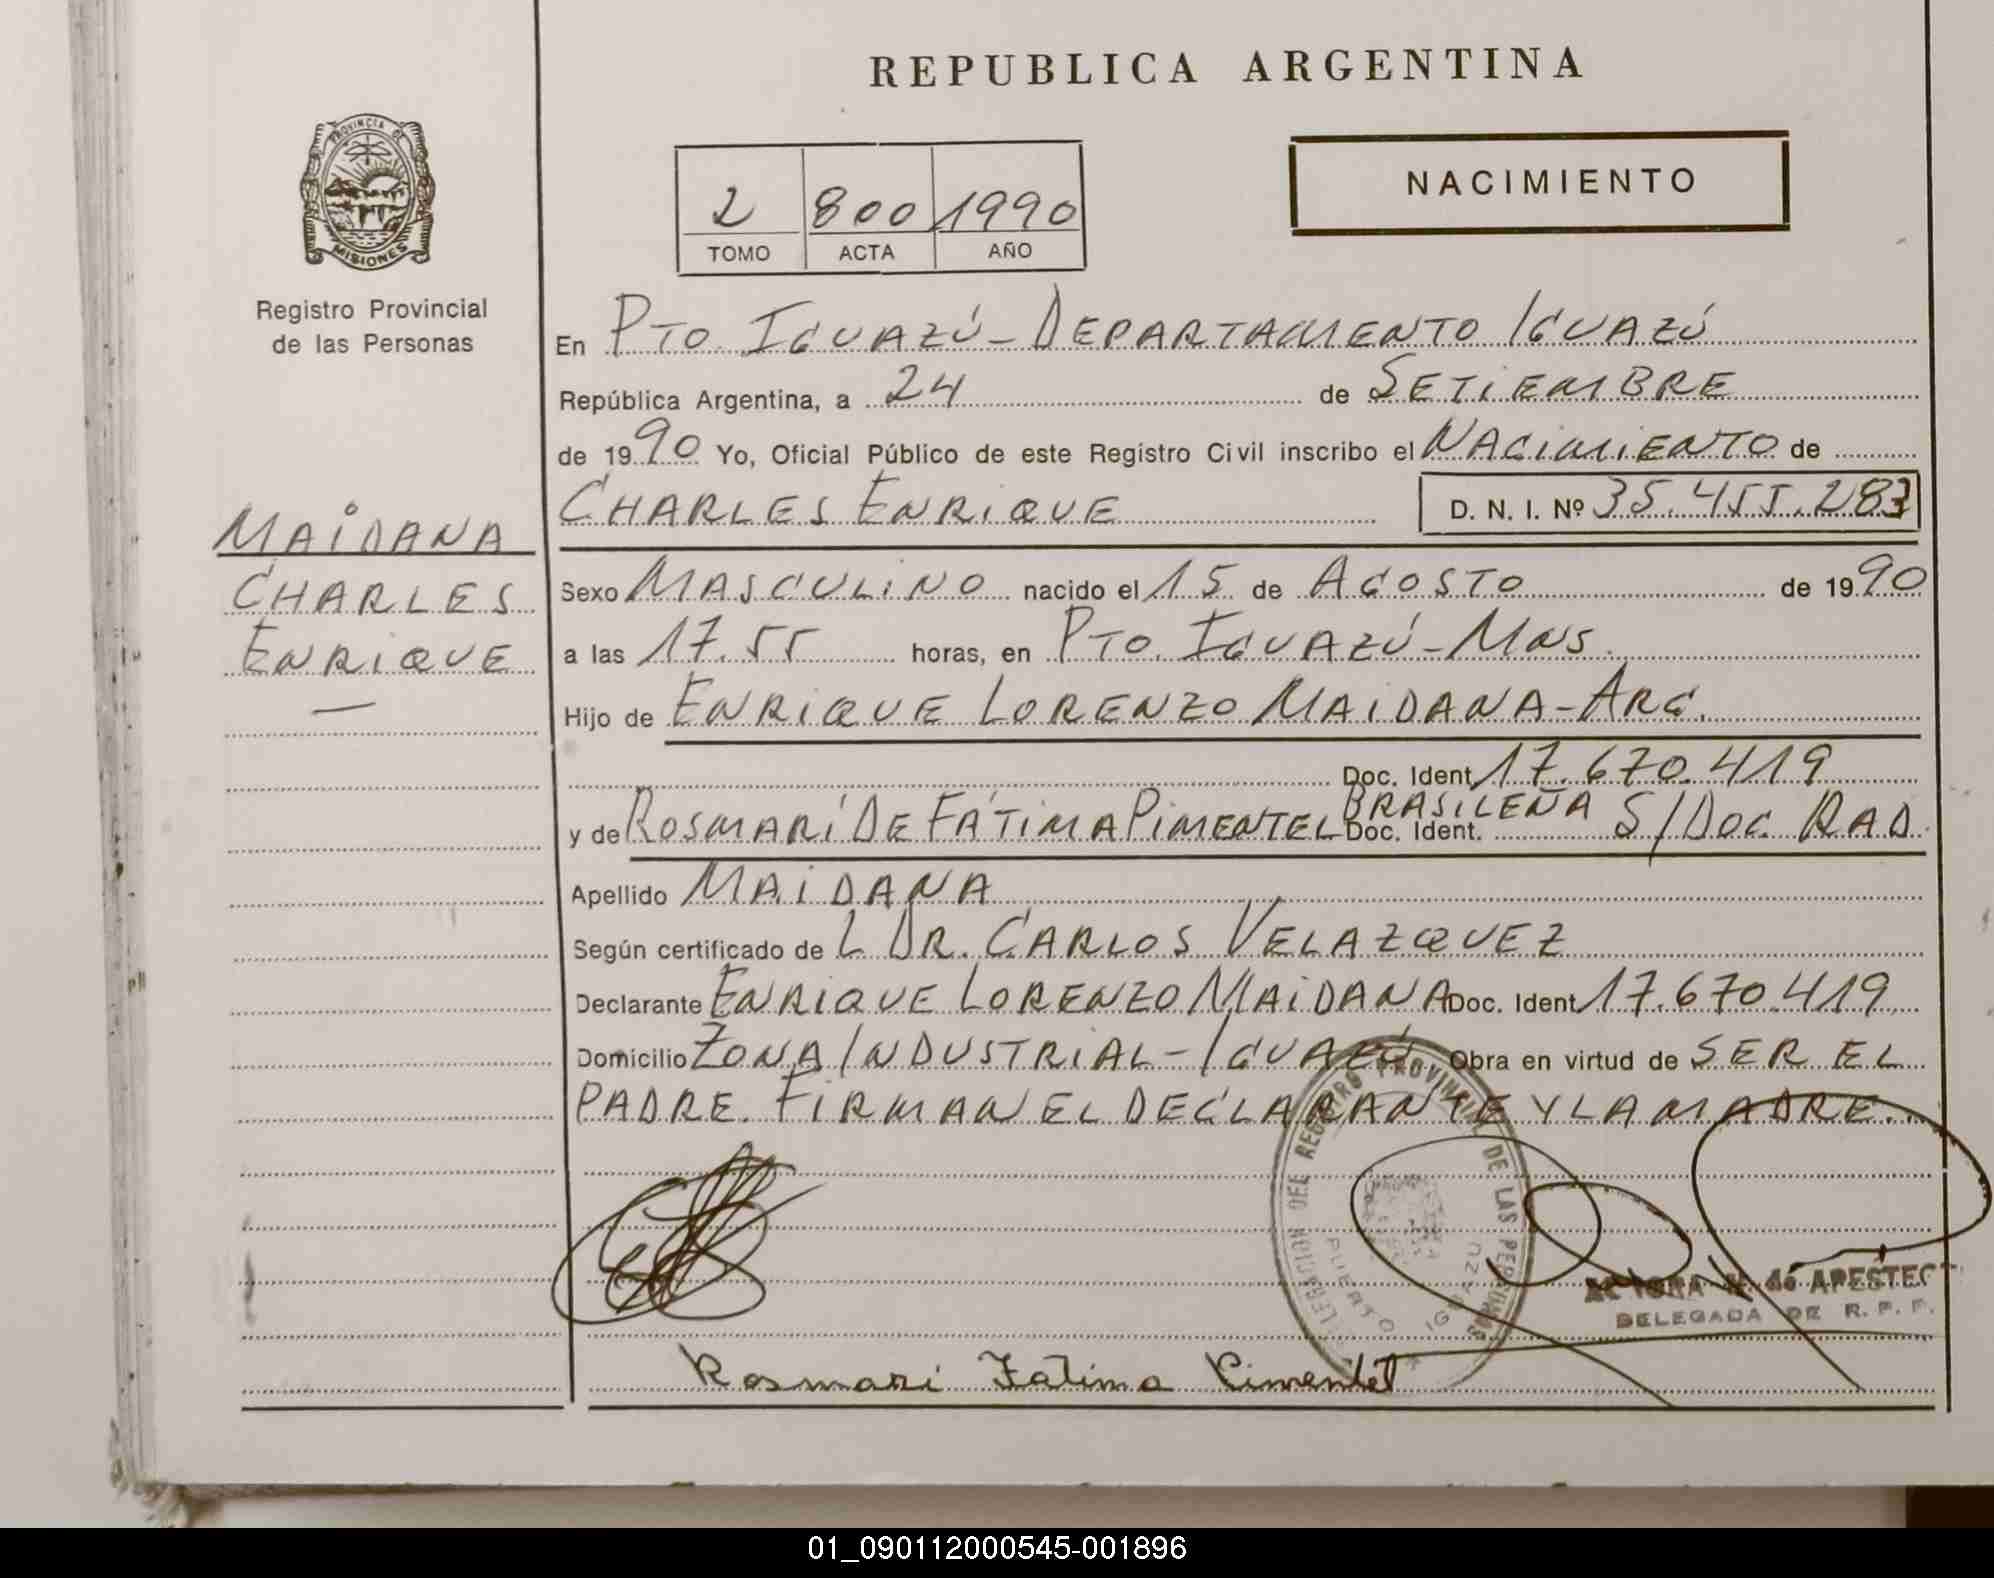 REPUBLICA ARGENTINA
PROVINCIA DE
MISIONES
Registro Provincial
de las Personas
NACIMIENTO
2 800 1990
TOMO ACTA AÑO
En PTO. IGUAZÚ - DEPARTAMENTO IGUAZÚ
República Argentina, a 24 de SETIEMBRE
de 1990 Yo, Oficial Público de este Registro Civil inscribo el NACIMIENTO de
CHARLES ENRIQUE D. N. I. Nº 35.455.283
MAIDANA
CHARLES
ENRIQUE
Sexo MASCULINO nacido el 15 de AGOSTO de 1990
a las 17.55 horas, en PTO. IGUAZÚ - MNS.
Hijo de ENRIQUE LORENZO MAIDANA - ARG.
Doc. Ident. 17.670.419
y de ROSMARÍ DE FÁTIMA PIMENTEL BRASILEÑA Doc. Ident. S/DOC. RAD.
Apellido MAIDANA
Según certificado de L DR. CARLOS VELAZQUEZ
Declarante ENRIQUE LORENZO MAIDANA Doc. Ident 17.670.419
Domicilio ZONA INDUSTRIAL - IGUAZÚ Obra en virtud de SER EL
PADRE. FIRMAN EL DECLARANTE Y LA MADRE.
DELEGACION DEL REGISTRO PROVINCIAL DE LAS PERSONAS
PUERTO IGUAZU
de APESTEG
DELEGADA DE R. P. P.
Rosmari Fatima Pimentel
01_090112000545-001896